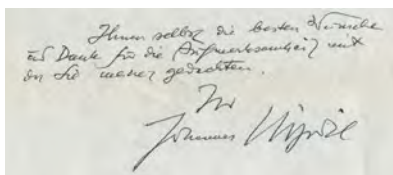 Ihnen selbst die besten Wünsche
und Dank für die Aufmerksamkeit mit
der Sie meiner gedachten.
Ihr
Johannes